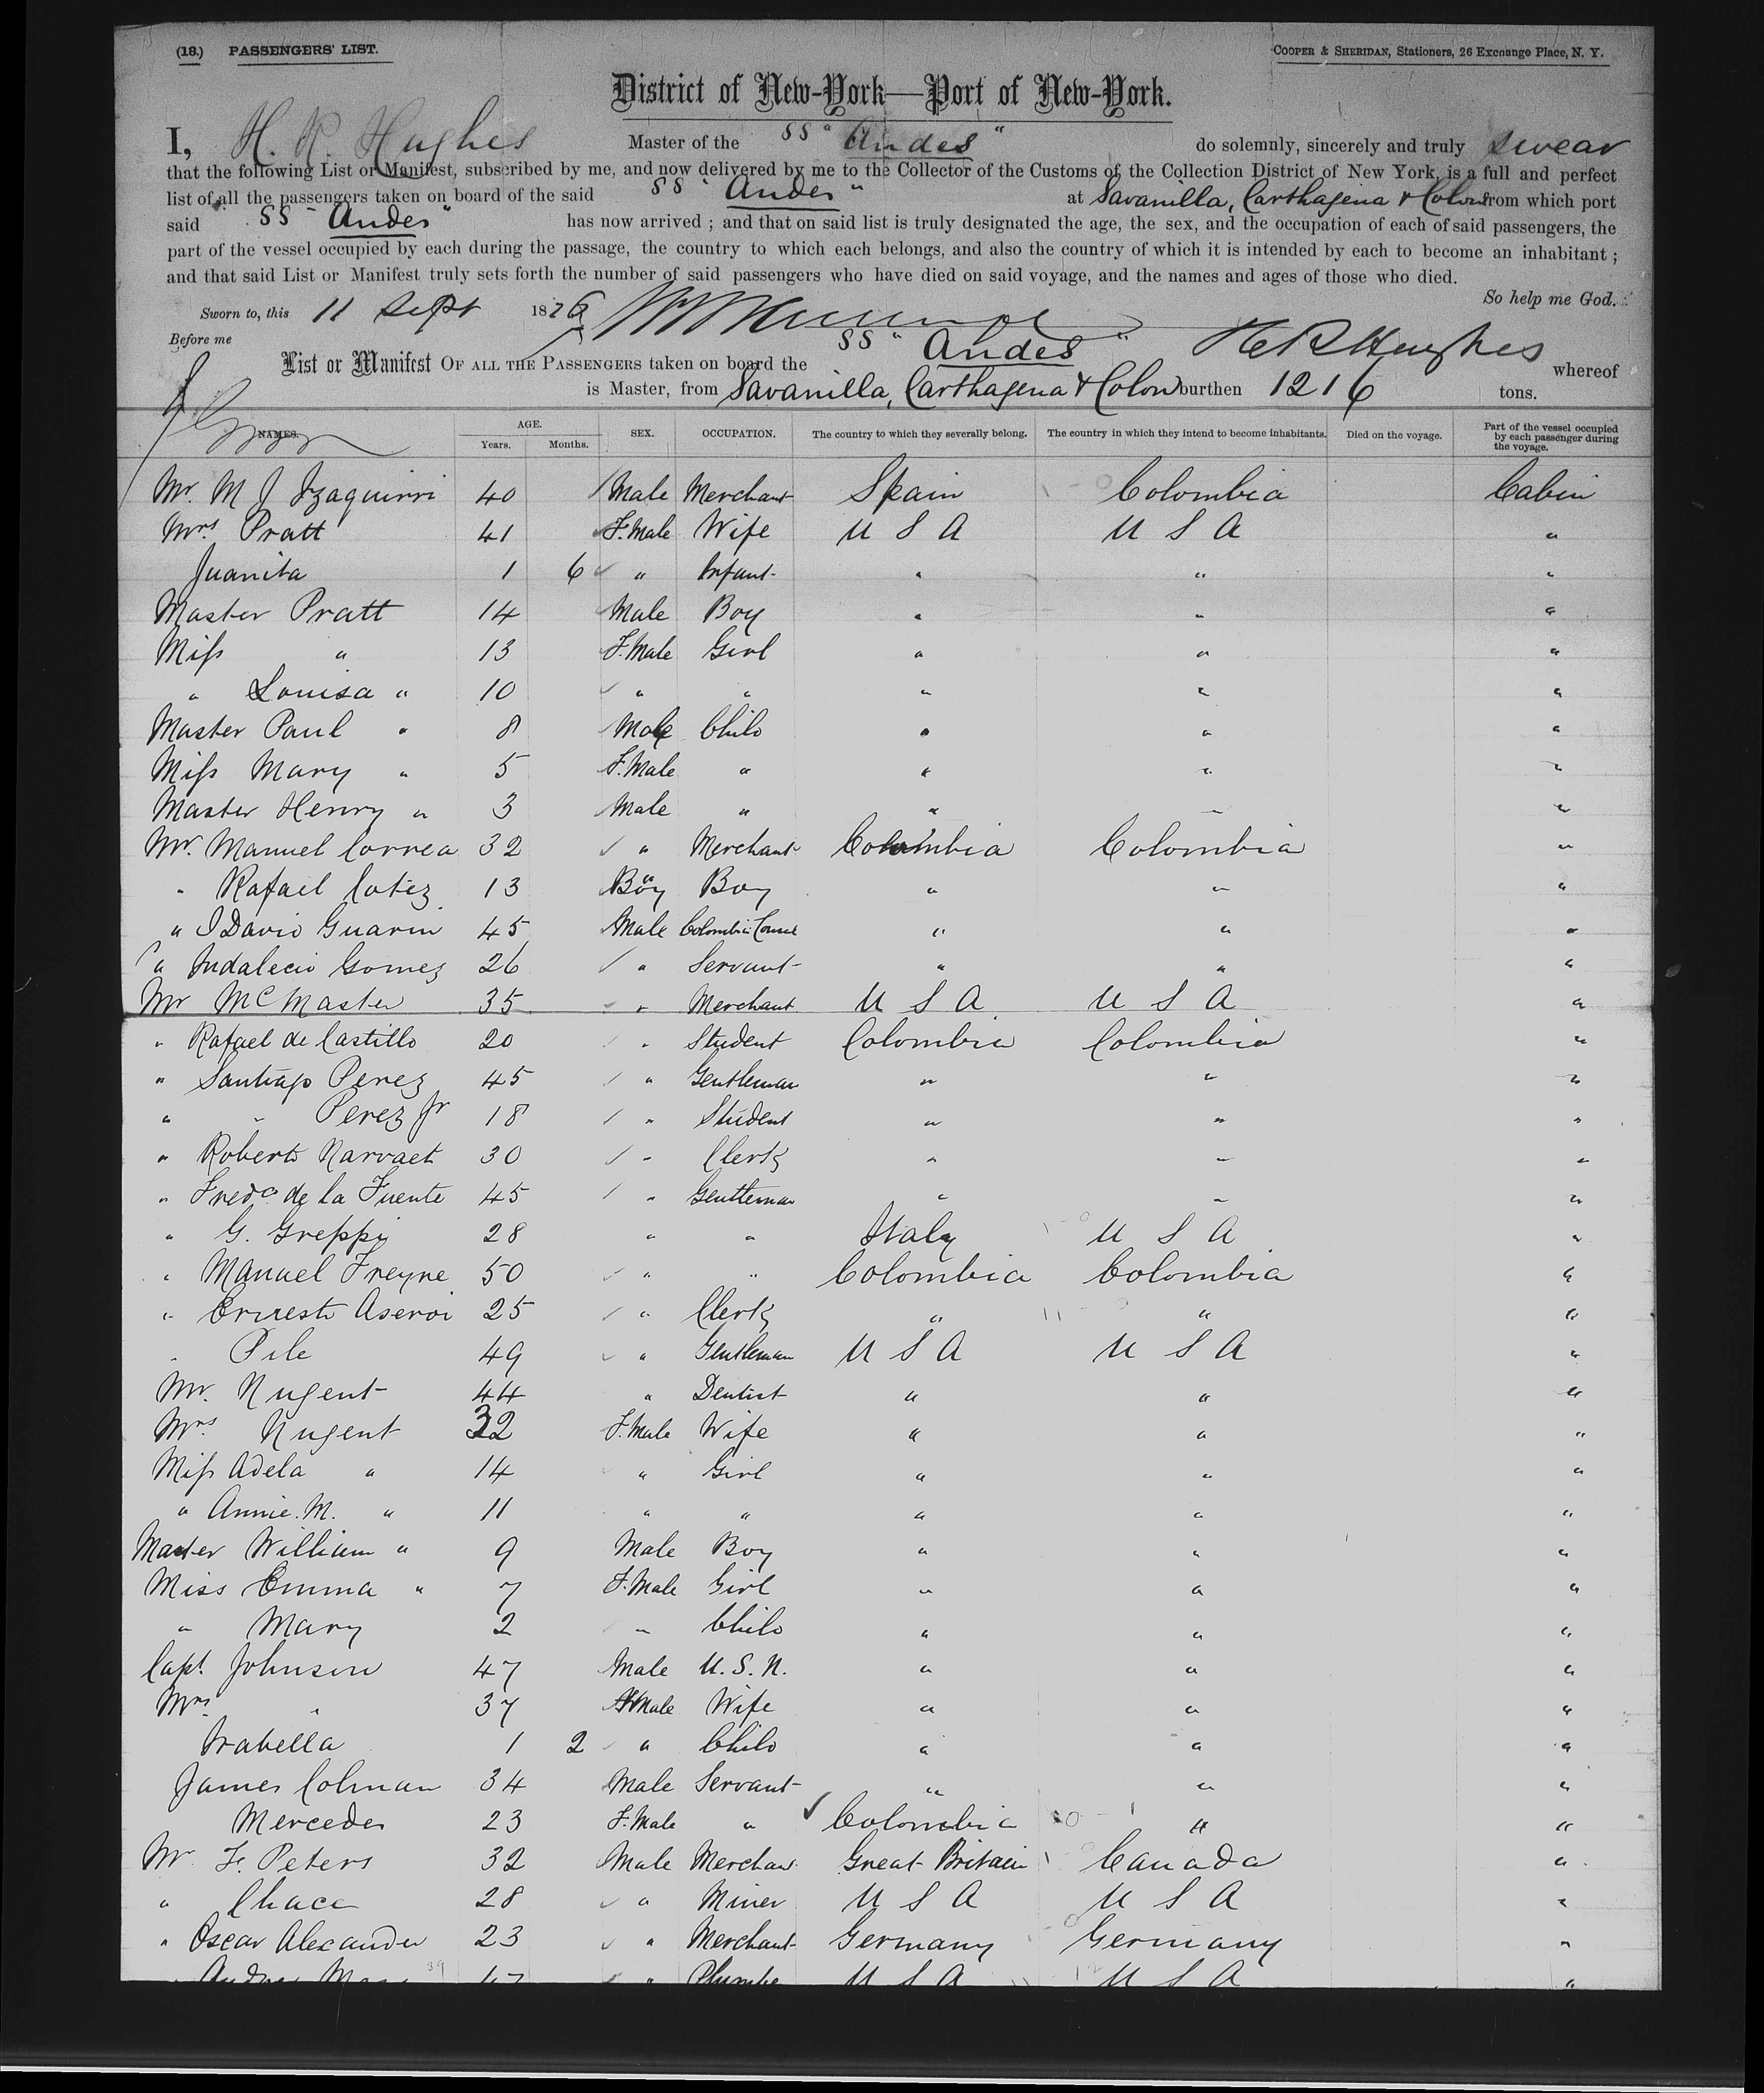 (18.) PASSENGERS' LIST.
COOPER & SHERIDAN, Stationers, 26 Exchange Place, N. Y.
District of New-York—Port of New-York.
I, H. R. Hughes Master of the SS "Andes" do solemnly, sincerely and truly swear
that the following List or Manifest, subscribed by me, and now delivered by me to the Collector of the Customs of the Collection District of New York, is a full and perfect
list of all the passengers taken on board of the said SS "Andes" at Savanilla, Carthagena & Colon from which port
said SS "Andes" has now arrived ; and that on said list is truly designated the age, the sex, and the occupation of each of said passengers, the
part of the vessel occupied by each during the passage, the country to which each belongs, and also the country of which it is intended by each to become an inhabitant ;
and that said List or Manifest truly sets forth the number of said passengers who have died on said voyage, and the names and ages of those who died.
So help me God.
Sworn to, this 11 Sept 1876
Before me
List or Manifest OF ALL THE PASSENGERS taken on board the SS "Andes" H R Hughes whereof
is Master, from Savanilla, Carthagena & Colon burthen 1216 tons.
NAMES. AGE. Years. Months. SEX. OCCUPATION. The country to which they severally belong. The country in which they intend to become inhabitants. Died on the voyage. Part of the vessel occupied by each passenger during the voyage.
Mr. M J Izaguirri 40 Male Merchant Spain Colombia Cabin
Mrs Pratt 41 F.Male Wife U S A U S A "
Juanita 1 6 " Infant " " "
Master Pratt 14 Male Boy " " "
Miss " 13 F.Male Girl " " "
" Louisa " 10 " " " " "
Master Paul " 8 Male Child " " "
Miss Mary " 5 F.Male " " " "
Master Henry " 3 Male " " " "
Mr. Manuel Correa 32 " Merchant Colombia Colombia "
" Rafael Cotez 13 Boy Boy " " "
" J David Guarin 45 Male Colombia Consul " " "
" Indalecio Gomez 26 " Servant " " "
Mr McMaster 35 " Merchant U S A U S A "
" Rafael de Castillo 20 " Student Colombia Colombia "
" Santiago Perez 45 " Gentleman " " "
" " Perez Jr 18 " Student " " "
" Roberto Narvaet 30 " Clerk " " "
" Fredco de la Fuente 45 " Gentleman " " "
" G. Greppi 28 " " Italy U S A "
" Manuel Freyne 50 " " Colombia Colombia "
" Ernesto Aseroi 25 " Clerk " " "
" Pile 49 " Gentleman U S A U S A "
Mr. Nugent 44 " Dentist " " "
Mrs Nugent 32 F.Male Wife " " "
Miss Adela " 14 " Girl " " "
" Annie. M. " 11 " " " " "
Master William " 9 Male Boy " " "
Miss Emma " 7 F.Male Girl " " "
" Mary 2 " Child " " "
Capt. Johnson 47 Male U.S.N. " " "
Mrs. " 37 F Male Wife " " "
Isabella 1 2 " Child " " "
James Colman 34 Male Servant " " "
Mercedes 23 F.Male " Colombia " "
Mr F. Peters 32 Male Merchant Great Britain Canada "
" Chace 28 " Miner U S A U S A "
" Oscar Alexander 23 " Merchant Germany Germany "
" " U S A U S A "